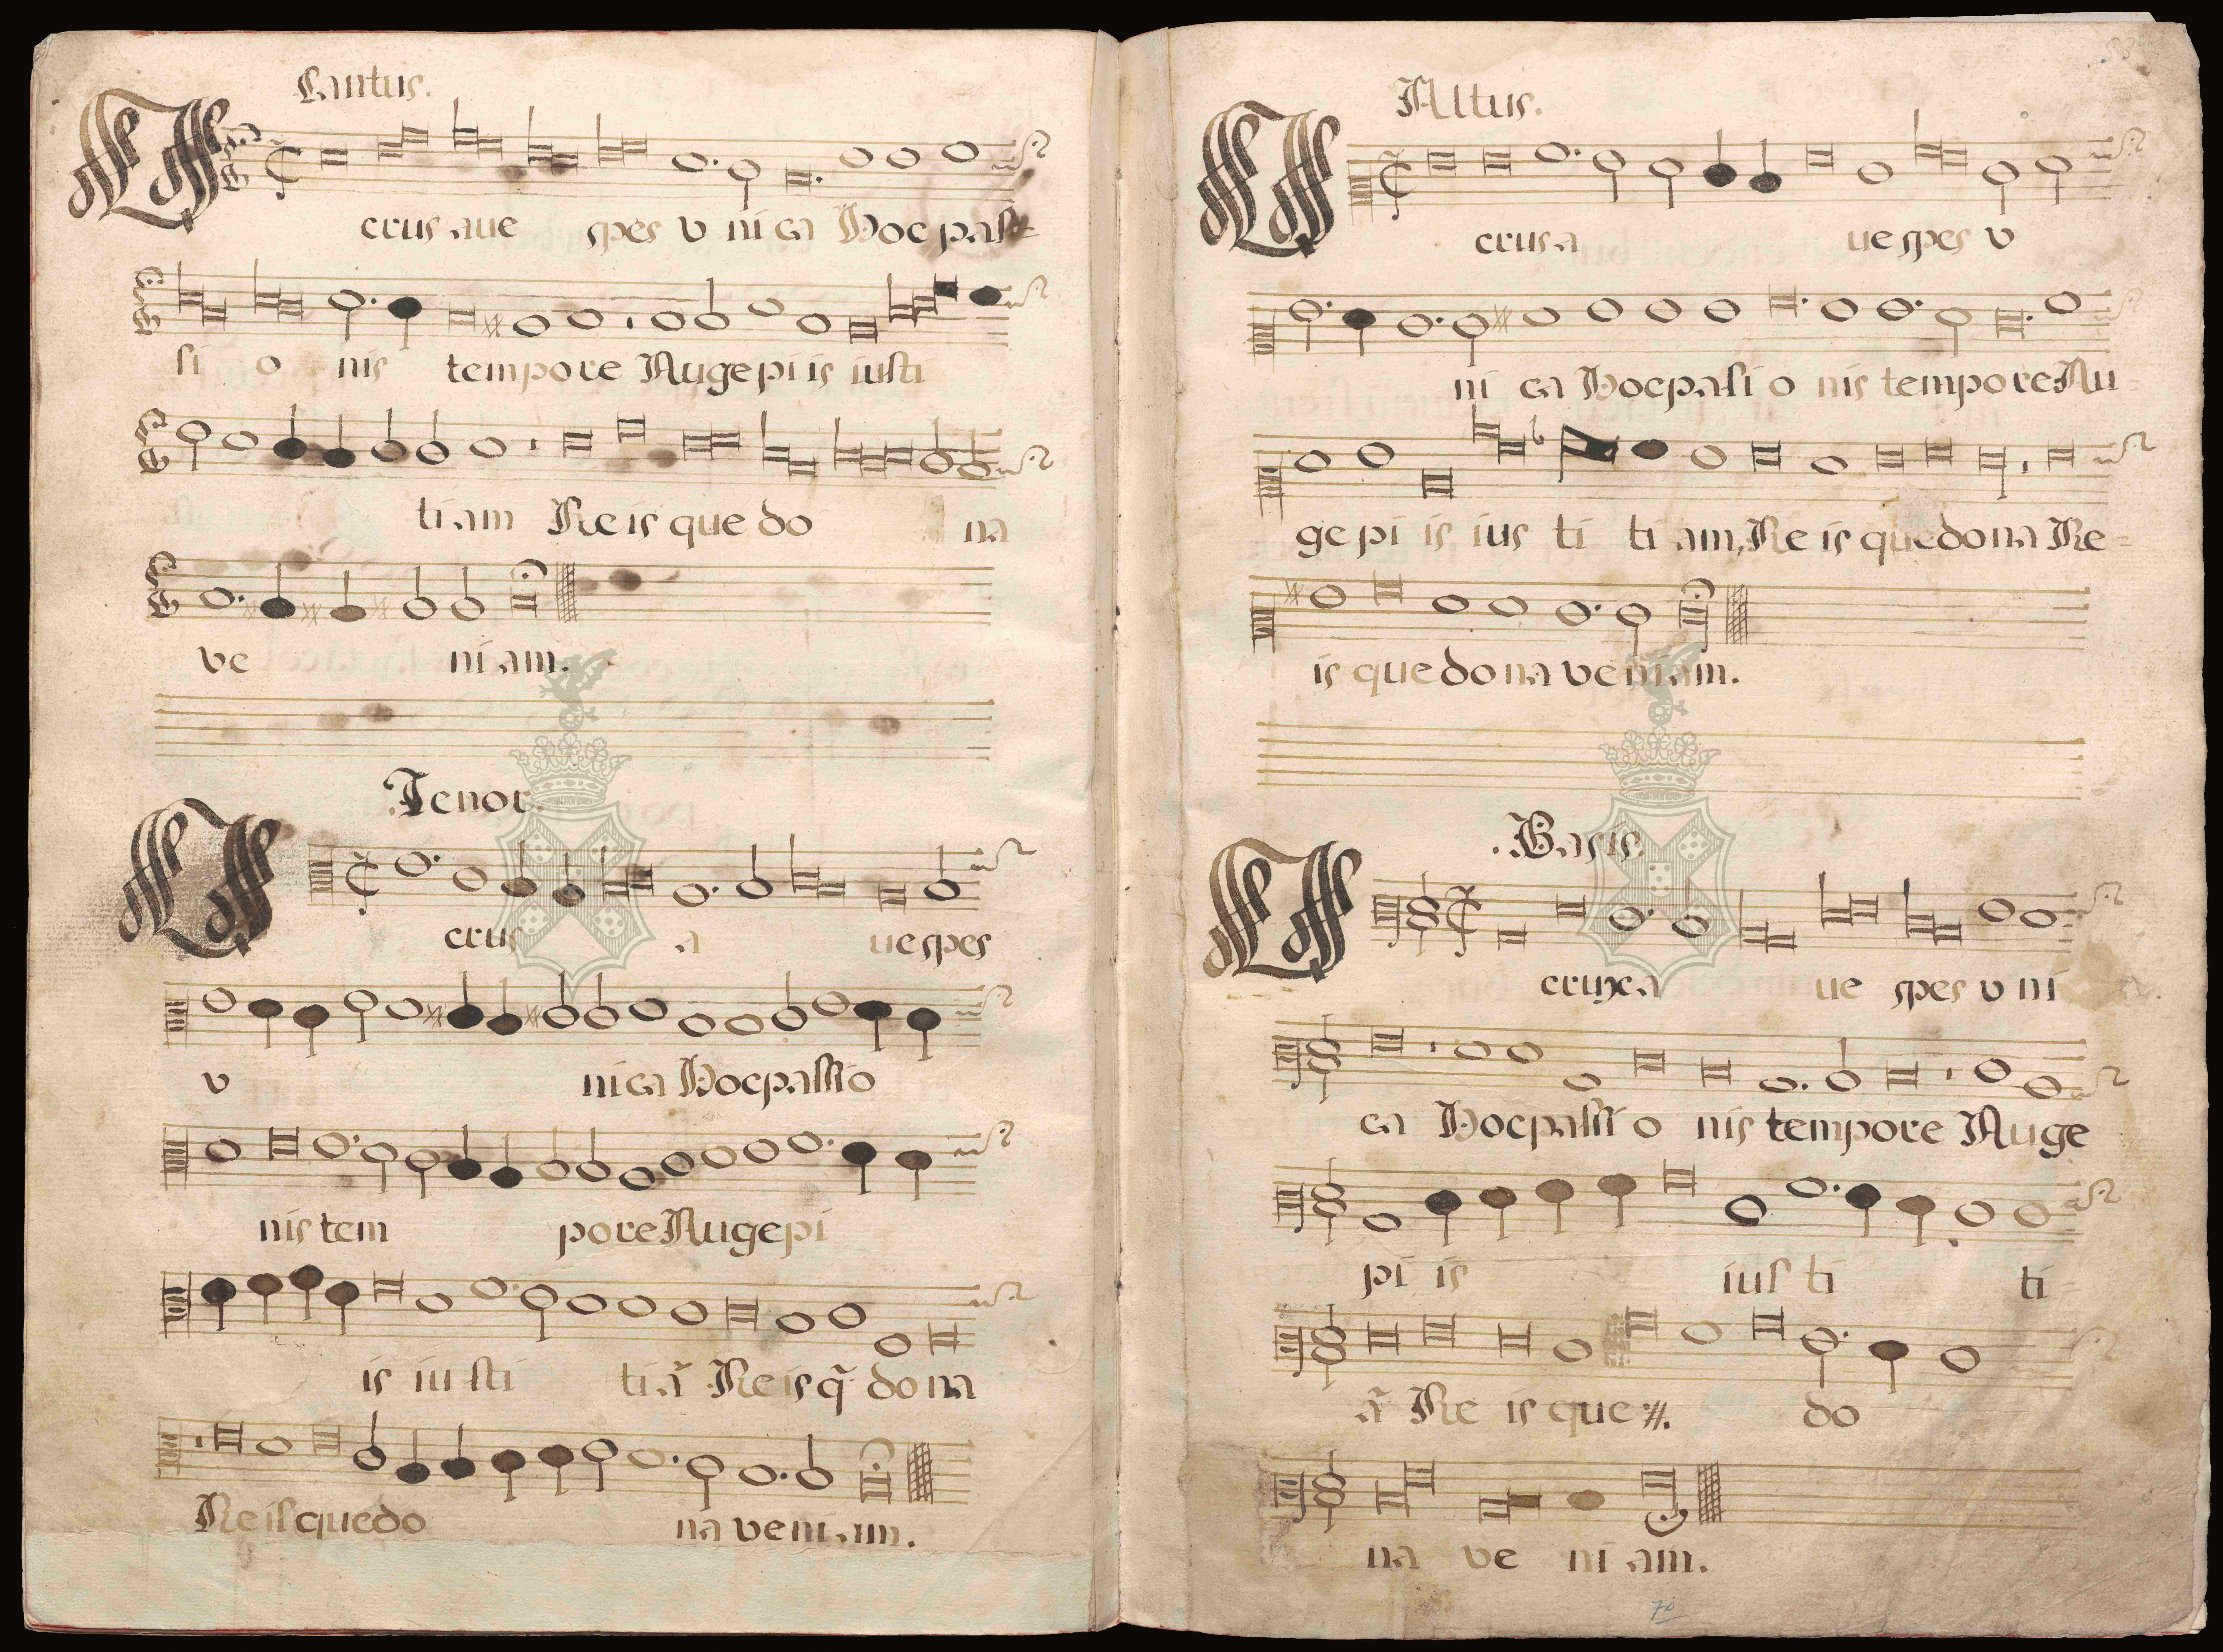 Cantus.
crus aue spes v ni ca Hoc pas=
si o nis tempore Auge pi is iusti
tiam Re is que do na
ve ni am.
Tenor.
crus a ue spes
v ni ca Hoc passio
nis tem pore Auge pi
is iu sti ti ã Re is q̃ do na
Re is que do na ve ni am.
Altus.
crus a ue spes v
ni ca Hoc pasi o nis tempore Au=
ge pi is ius ti ti am, Re is que do na Re=
is que do na ve ni am.
Basis.
crux a ue spes v ni
ca Hoc passi o nis tempore Auge
pi is ius ti ti
ã Re is que ij. do
na ve ni am.
70